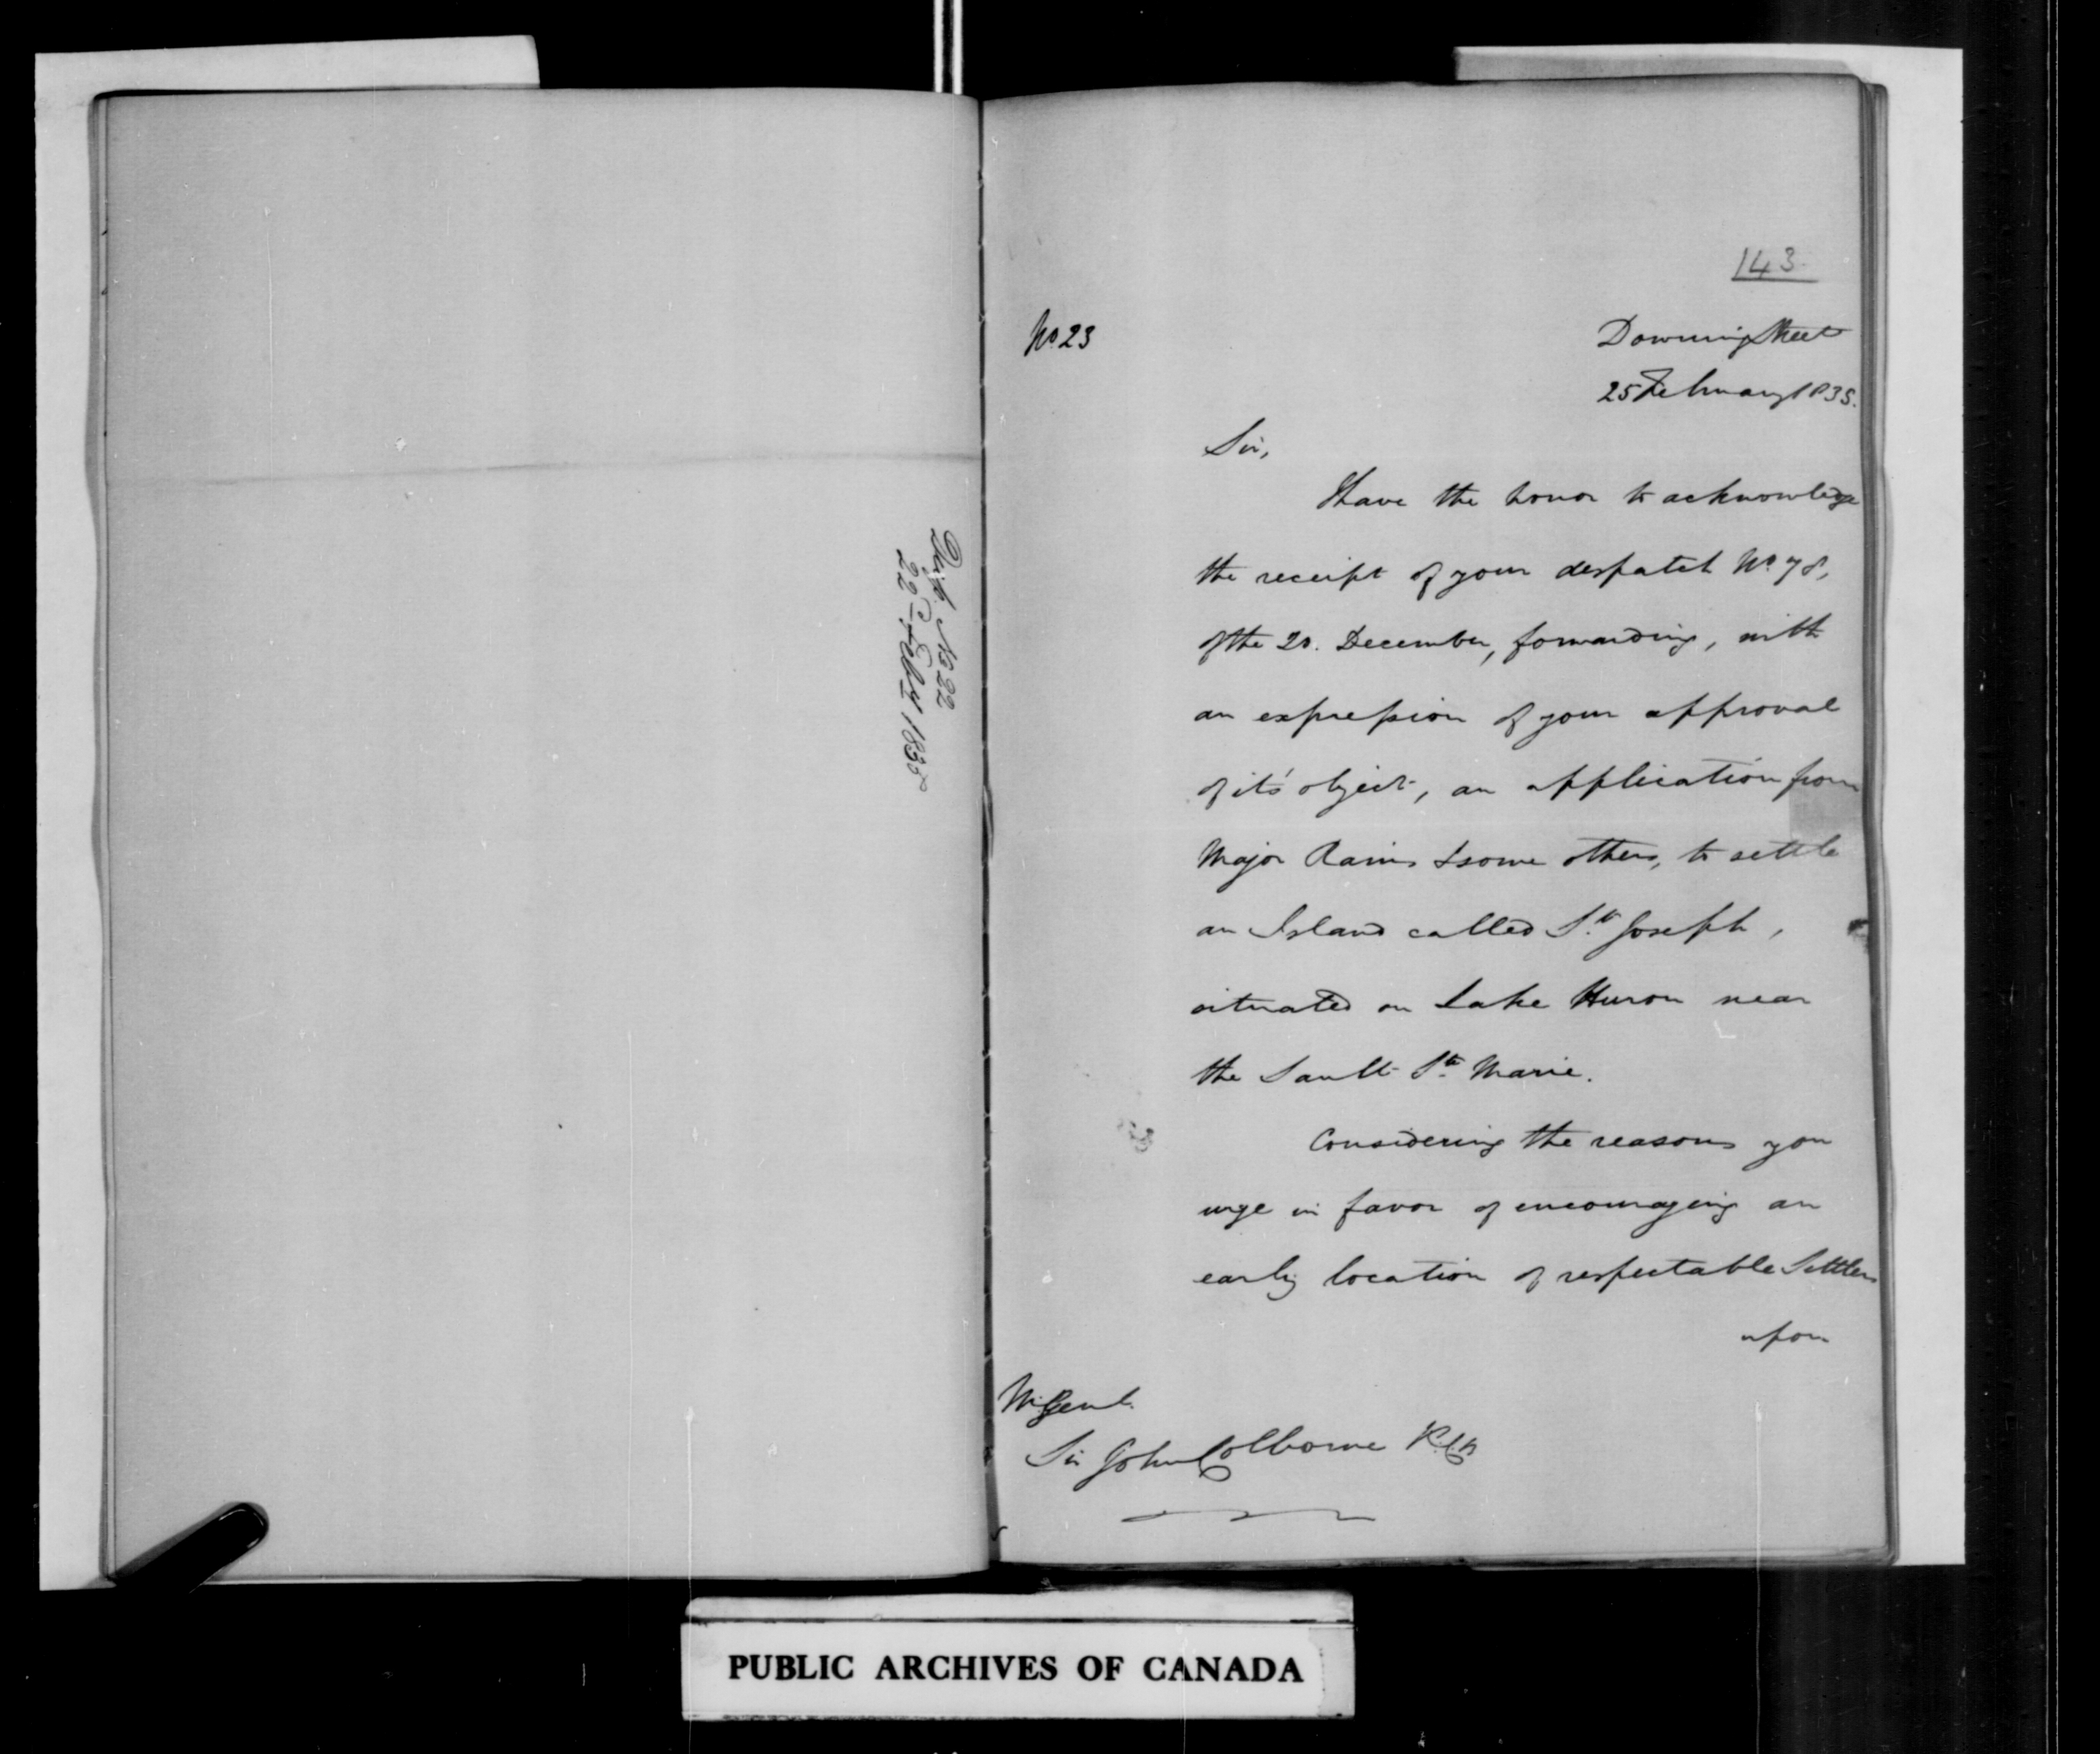 Desp. No 22
22 Feby 1835
143
No. 23
Downing Street
25 February 1835.
Sir,
I have the honor to acknowledge
the receipt of your despatch No. 78,
of the 20. December, forwarding, with
an expression of your approval
of it's object, an application from
Major Rains & some others, to settle
an Island called St. Joseph,
situated on Lake Huron near
the Sault Ste. Marie.
Considering the reasons you
urge in favor of encouraging an
early location of respectable Settlers
upon
M. Genl.
Sir John Colborne KCB
PUBLIC ARCHIVES OF CANADA